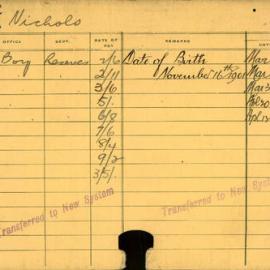 Nichols
OFFICE DEPT. RATE OF PAY REMARKS
Boy Reserves 2/6 Date of Birth Mar
2/11 November 16th 1901 Mar
3/6 Mar 3
5/.
6/8
7/6
8/4
9/2
Transferred to New System
Transferred to New System